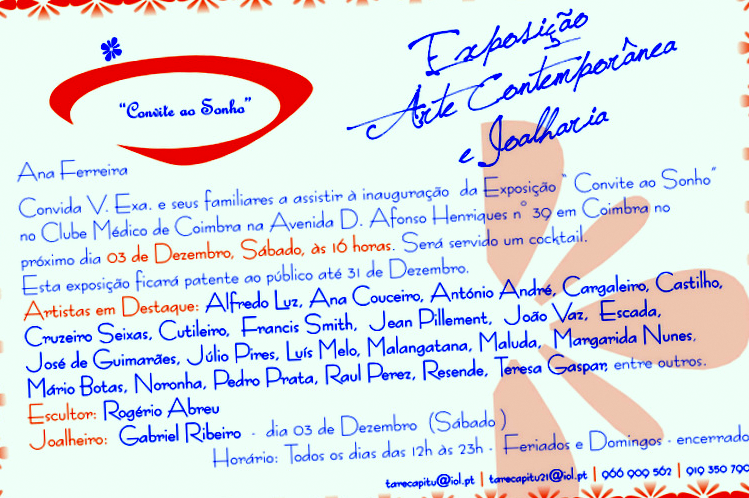 Exposição
Arte Contemporânea
e Joalharia
"Convite ao Sonho"
Ana Ferreira
Convida V. Exa. e seus familiares a assistir à inauguração da Exposição " Convite ao Sonho"
no Clube Médico de Coimbra na Avenida D. Afonso Henriques nº 39 em Coimbra no
próximo dia 03 de Dezembro, Sábado, às 16 horas. Será servido um cocktail.
Esta exposição ficará patente ao público até 31 de Dezembro.
Artistas em Destaque: Alfredo Luz, Ana Couceiro, António André, Cargaleiro, Castilho,
Cruzeiro Seixas, Cutileiro, Francis Smith, Jean Pillement, João Vaz, Escada,
José de Guimarães, Júlio Pires, Luís Melo, Malangatana, Maluda, Margarida Nunes,
Mário Botas, Noronha, Pedro Prata, Raul Perez, Resende, Teresa Gaspar, entre outros.
Escultor: Rogério Abreu
Joalheiro: Gabriel Ribeiro - dia 03 de Dezembro (Sábado )
Horário: Todos os dias das 12h às 23h - Feriados e Domingos - encerrado
tarecapitu@iol.pt | tarecapitu21@iol.pt | 966 909 562 | 919 350 790